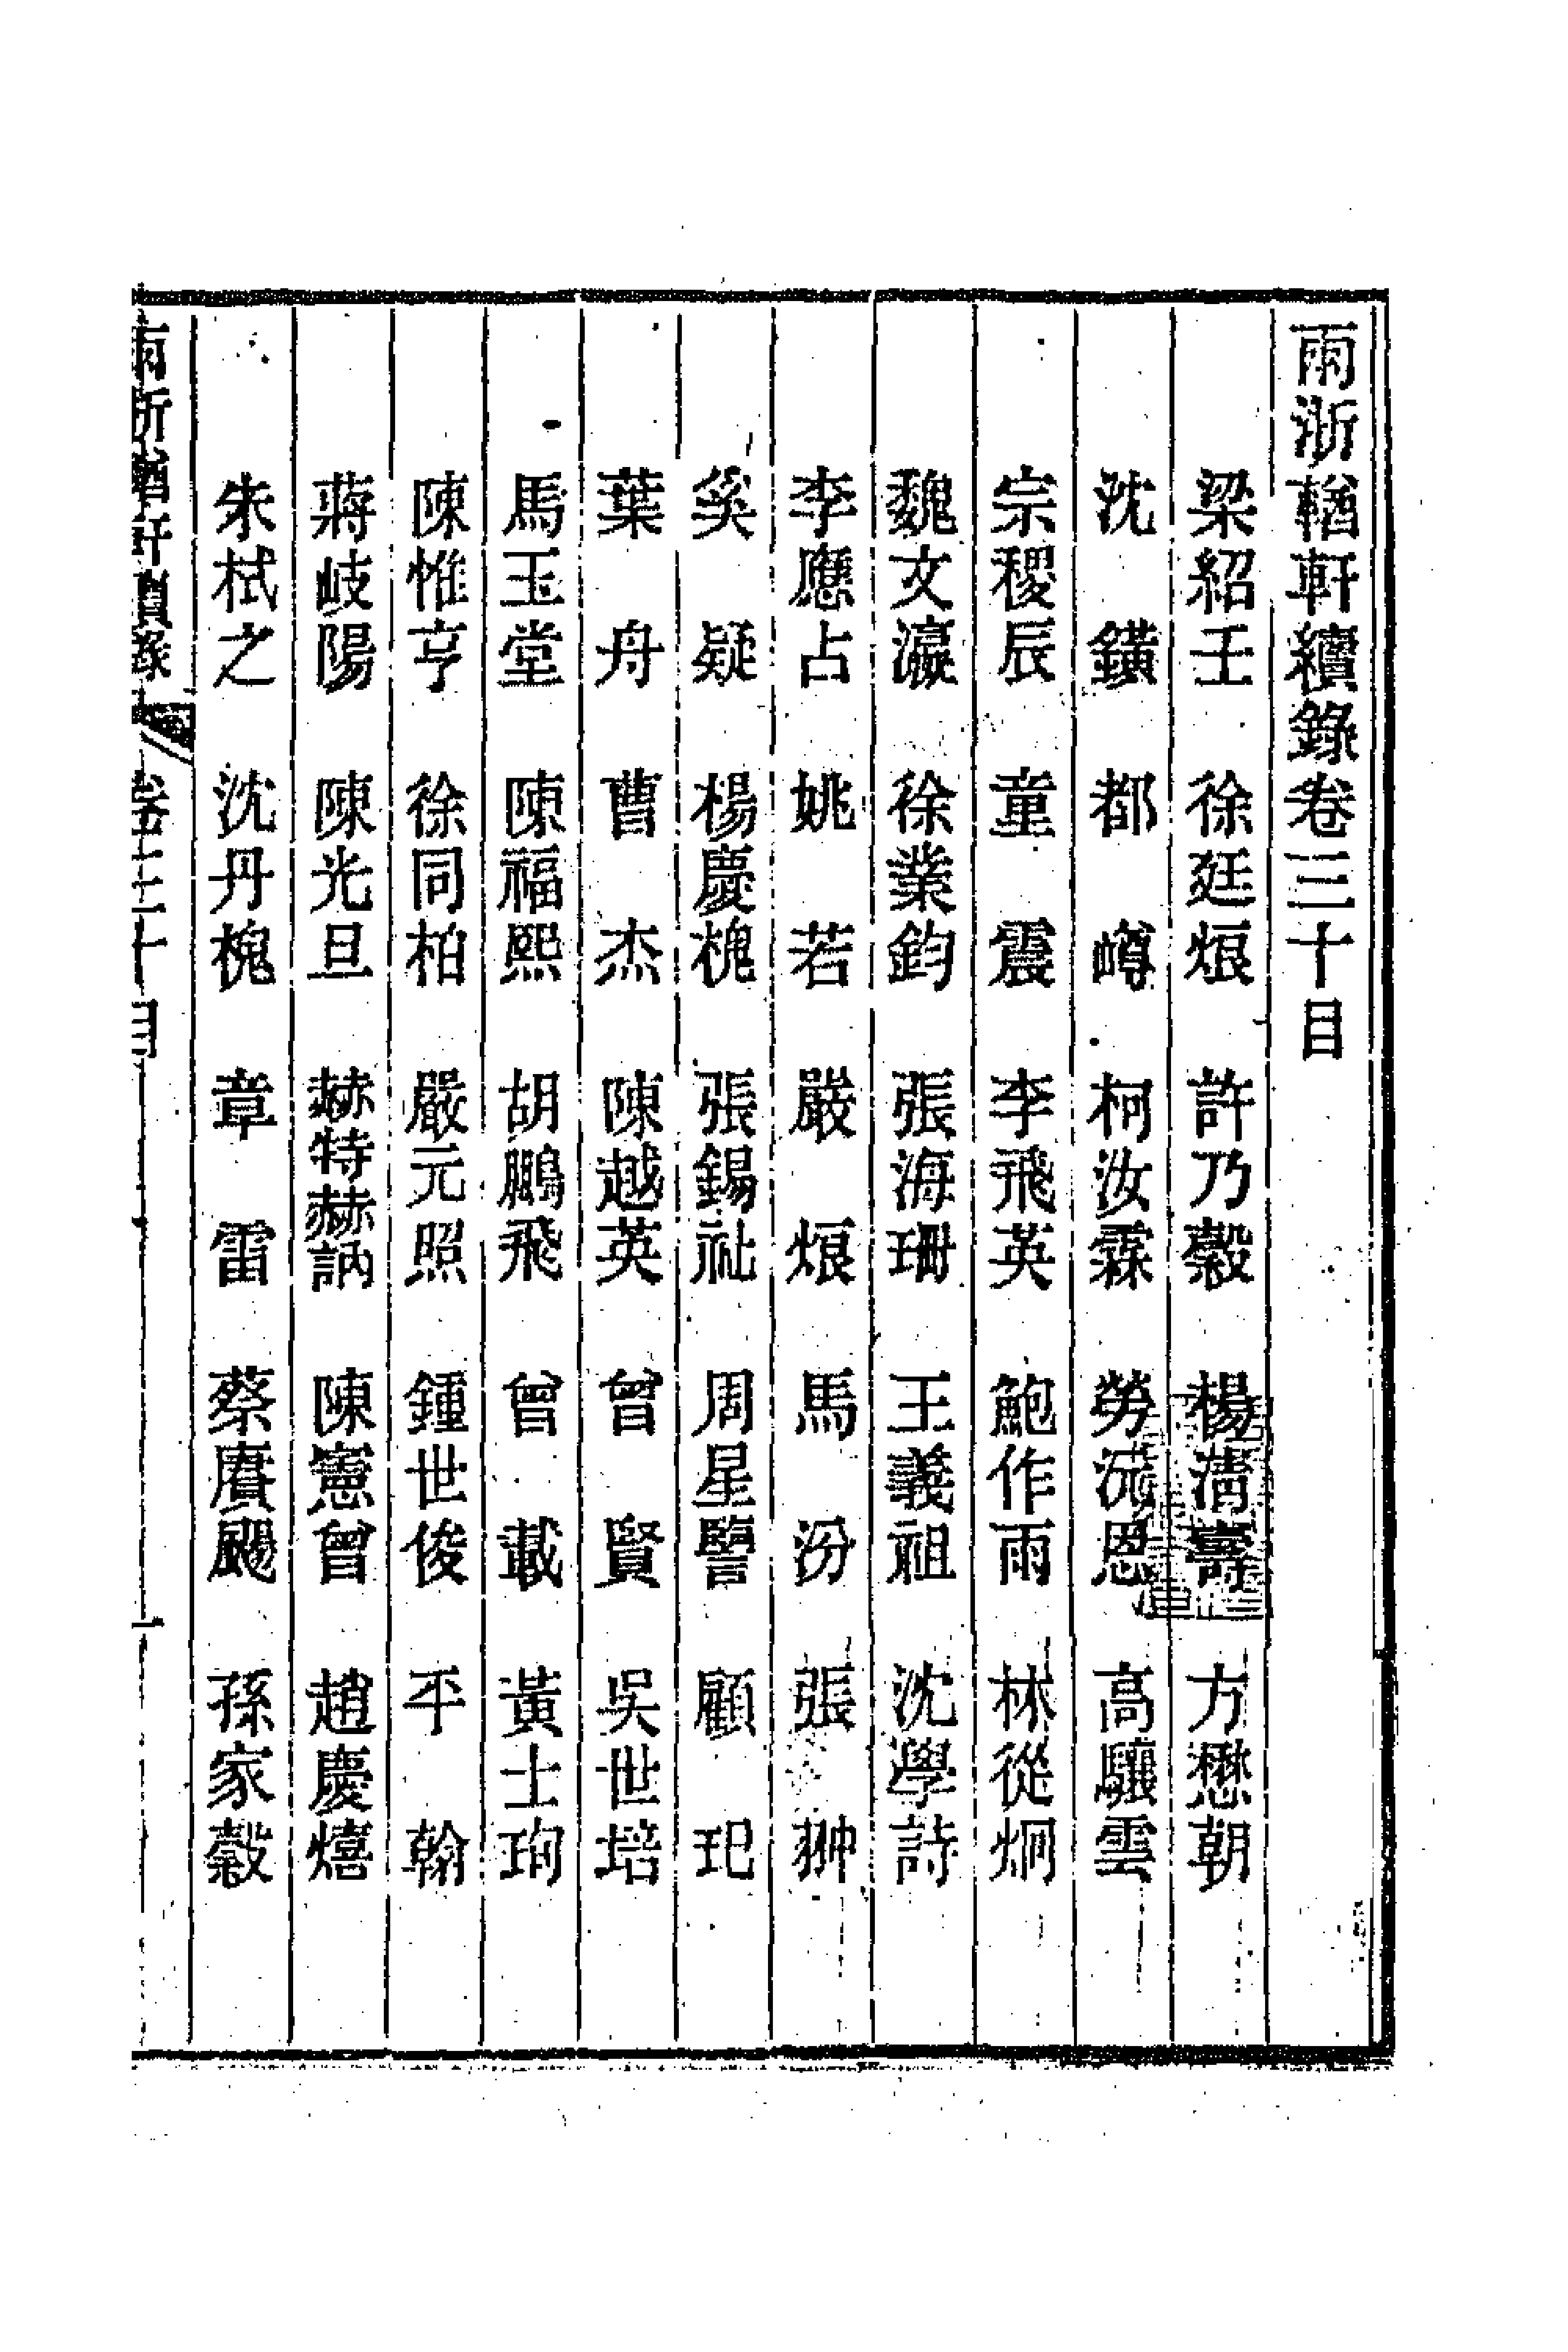 兩浙輶軒續錄卷三十目
梁紹壬　徐廷烺　許乃穀　楊淸壽　方懋朝
沈鐄　都嶟　柯汝霖　勞沅恩　高驤雲
宗稷辰　童震　李飛英　鮑作雨　林從炯
魏文瀛　徐業鈞　張海珊　王義祖　沈學詩
李應占　姚若　嚴烺　馬汾　張翀
奚疑　楊慶槐　張錫祉　周星譽　顧玘
葉舟　曹杰　陳越英　曾賢　吳世培
馬玉堂　陳福熙　胡鵬飛　曾載　黃士珣
陳惟亨　徐同柏　嚴元照　鍾世俊　平翰
蔣岐陽　陳光旦　赫特赫訥　陳憲曾　趙慶熺
朱栻之　沈丹槐　章雷　蔡賡颺　孫家穀
兩浙輶軒續錄　卷三十目　一